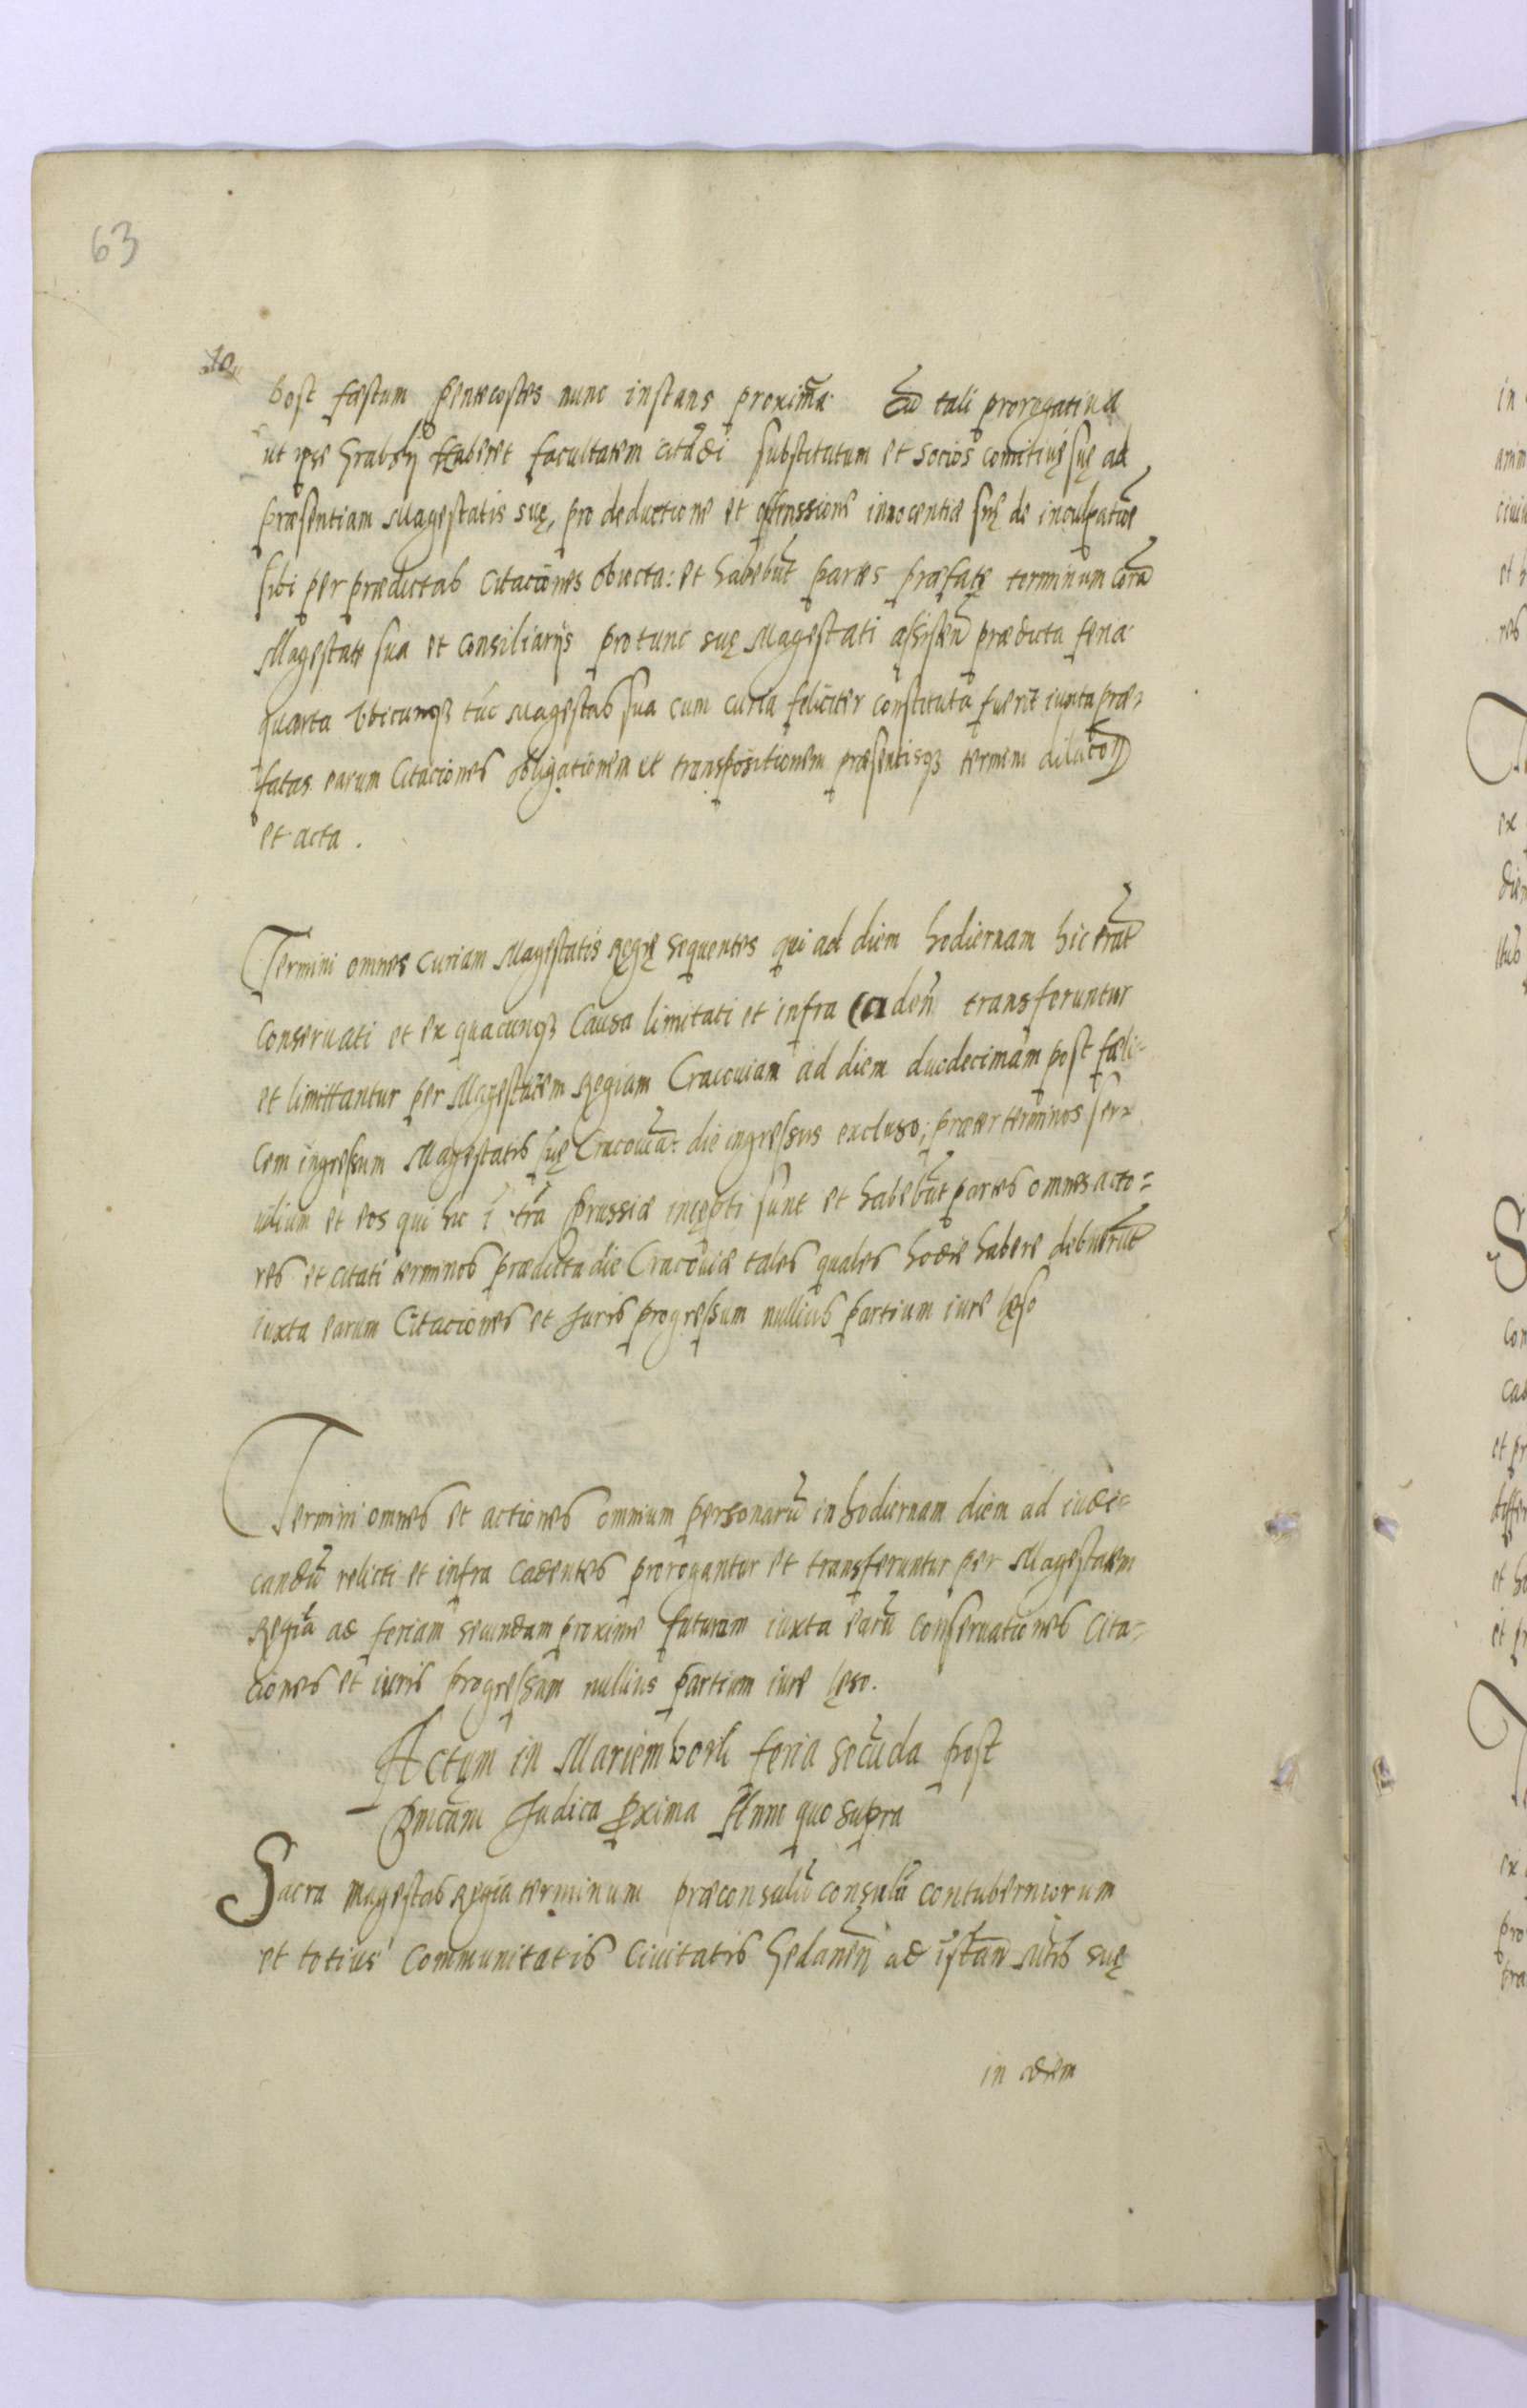 63
10
post fæstum pentecostes nunc instans proxima Cū tali prorogatiua
ut ipse Grabsky Haberet facultatem citādi substitutum et socios comitiuę suę ad
præsentiam Magestatis suę, pro deductione et innocentiæ suę de inculpatiōe
sibi per prædictas Citaciones obiecta: et habebūt partes præfatę terminum corā
Magestate sua et Consiliarijs protunc suę Magestati assisten̄ prædicta feria
quarta vbicunq3 tūc Magestas sua cum curia feliciter constituta fuerit iuxta præ-
fatas earum Citaciones obligationem et transpositionem præsentisq3 termini dilacōn̄
et acta.
Termini omnes curiam Magestatis Regię sequentes qui ad diem hodiernam hic erāt
Conseruati et ex quacunq3 Causa limitati et infra caden̄ transferuntur
et limittantur per Magestatem Regiam Cracouiam ad diem duodecimam post fæli-
cem ingressum Magestatis suę Cracouiā: die ingressus excluso; præter terminos ser-
uilium et eos qui hic ī trā Prussiæ incępti sunt et habebūt partes omnes acto=
res et citati terminos prædicta die Cracouiæ tales quales hodie habere debuerūt
iuxta earum Citaciones et Juris progressum nullius partium iure lęso
Termini omnes et actiones omnium personarū in hodiernam diem ad iudi=
candū relicti et infra cadentes prorogantur et transferuntur per Magestatem
Regiā ad feriam secundam proxime futuram iuxta earū conseruationes Cita=
ciones et iuris progressum nullius partium iure lęso.
Actum in Mariembork feria secūda post
Dnicam Judica proxima Anno quo supra
Sacra Magestas Regia terminum præconsulū consulū contuberniorum
et totius Communitatis Ciuitatis Gedanen̄ ad īstan Mtis suę
in ædem